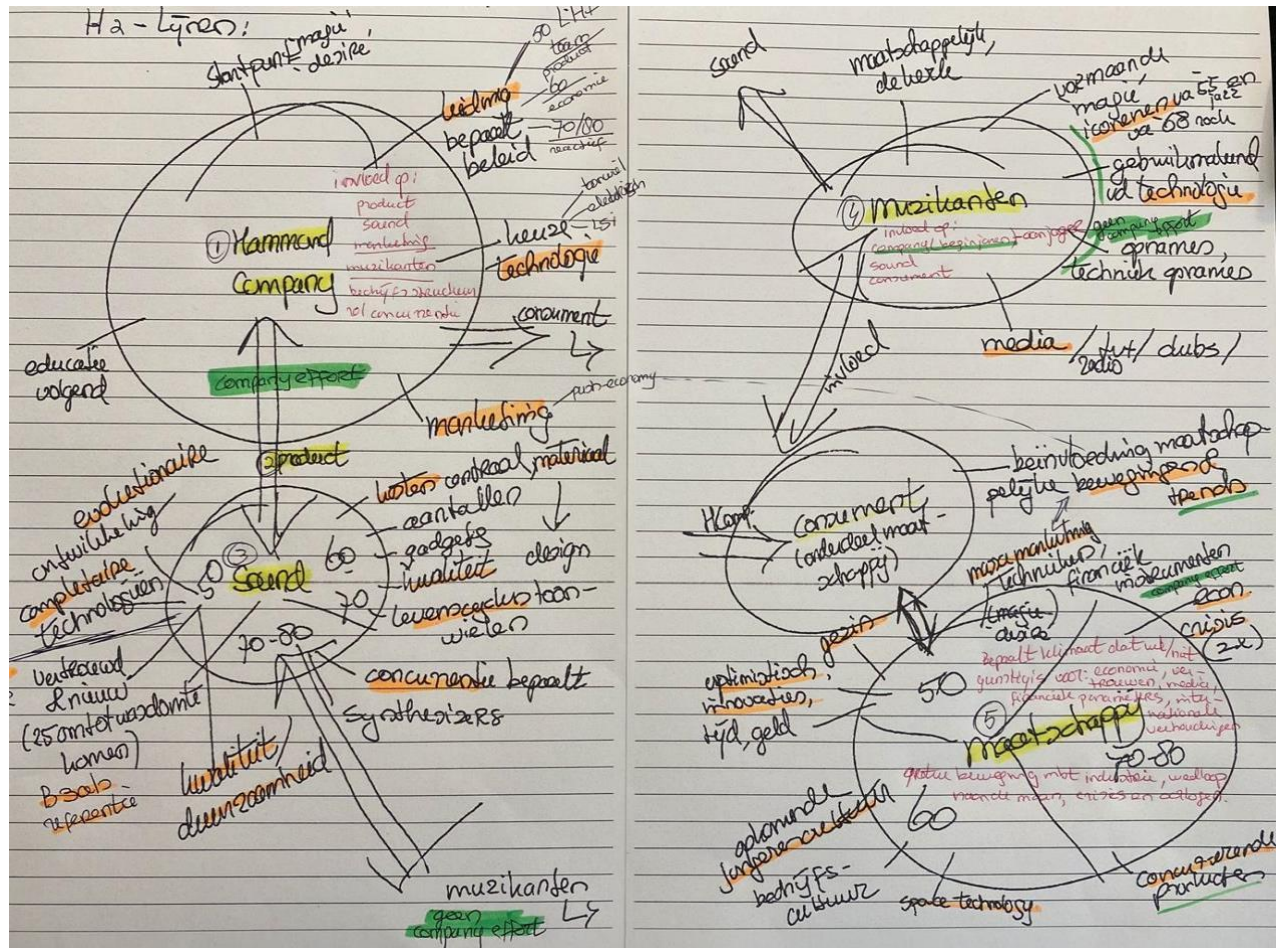 H2 - Lijnen:
startpunt magie,
desire
leiding
bepaalt
beleid
50
team
product
60
economie
70/80
reactief
invloed op:
product
sound
marketing
muzikanten
bedrijfsstructuur
rol concurrentie
① Hammond
Company
keuze
technologie
toonwiel
elektrisch
LSI
consument
educatie
volgend
company effort
marketing
push-economy
② product
evolutionaire
ontwikkeling
completaire
technologieën
vertrouwd
& nieuw
(25 om tot wasdom te
komen)
B3 als
referentie
③
Sound
50
60
70
70-80
kosten centraal, materiaal
aantallen
gadgets
kwaliteit
design
levenscyclus toon-
wielen
concurrentie bepaalt
synthesizers
kwaliteit/
duurzaamheid
muzikanten
geen
company effort
sound
maatschappelijk,
de kerk
voormaande
magie
iconenen va 55 en
jazz
va 68 rock
gebruikmakend
vd technologie
④ Muzikanten
invloed op:
company/beginjaren toonjager
sound
consument
geen
company effort
opnames,
techniek opnames
media / tv / clubs /
radio
invloed
HComp.
Consument
(onderdeel maat-
schappij)
beïnvloeding maatschap-
pelijke bewegingen &
trends
massamarketing
technieken,
(magie/
desire)
financiële
instrumenten
company effort
econ.
crisis
(2x)
gezin
optimistisch,
innovaties,
tijd, geld
50
bepaalt klimaat dat wel/niet
gunstig is voor: economie, ver-
trouwen, media,
financiële parameters, inter-
nationale
verhoudingen
⑤
Maatschappij
70-80
grote beweging mbt industrie, wedloop
naar de maan, crises en oorlogen.
60
opkomende
jongerencultuur
bedrijfs-
cultuur
space technology
concurrerende
producten